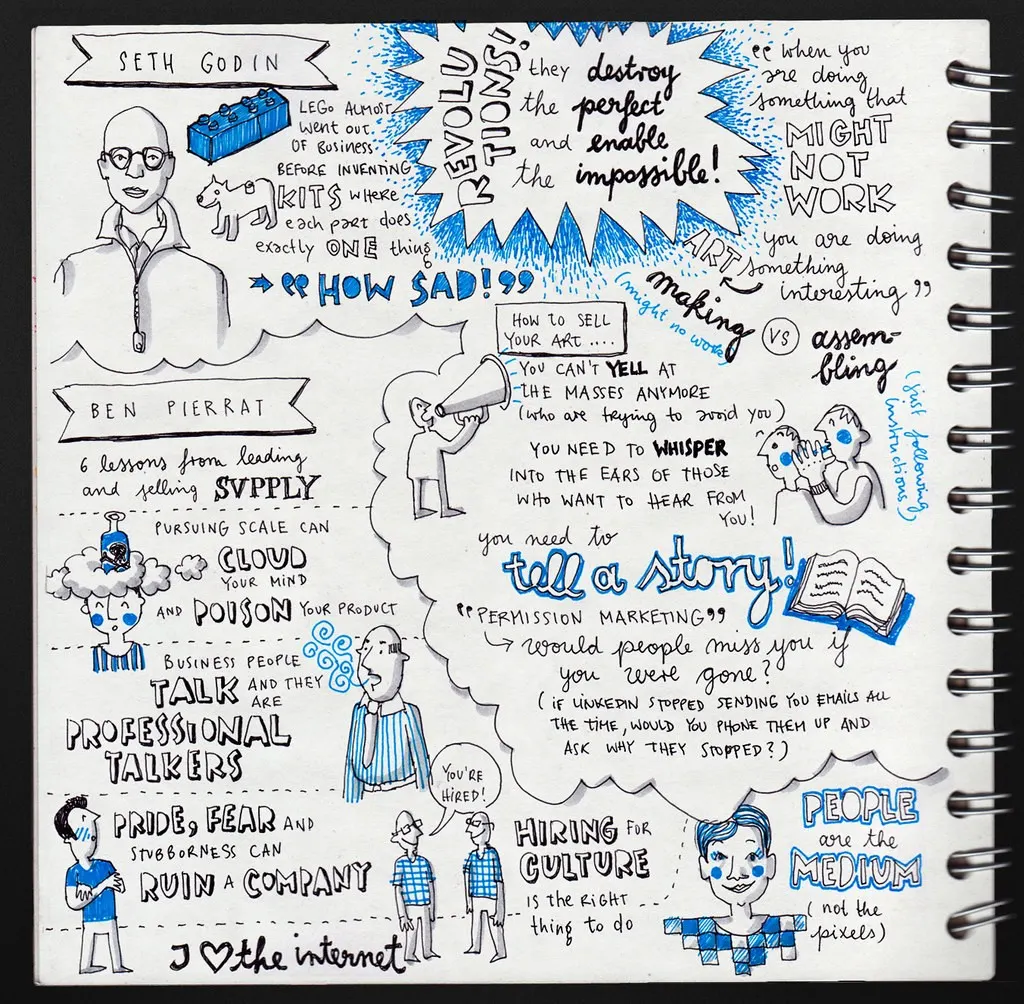 SETH GODIN
LEGO ALMOST
went out
OF BUSINESS
BEFORE INVENTING
KITS WHERE
each part does
exactly ONE thing
"HOW SAD!"
REVOLU
TIONS!
they destroy
the perfect
and enable
the impossible!
"when you
are doing
something that
MIGHT
NOT
WORK
you are doing
something
interesting"
ART
making
(might no work)
VS
assem-
bling
(just following
instructions)
HOW TO SELL
YOUR ART ....
YOU CAN'T YELL AT
THE MASSES ANYMORE
(who are trying to avoid you)
YOU NEED TO WHISPER
INTO THE EARS OF THOSE
WHO WANT TO HEAR FROM
YOU!
you need to
tell a story!
"PERMISSION MARKETING"
would people miss you if
you were gone?
(IF LINKEDIN STOPPED SENDING YOU EMAILS ALL
THE TIME, WOULD YOU PHONE THEM UP AND
ASK WHY THEY STOPPED?)
BEN PIERRAT
6 lessons from leading
and selling SVPPLY
PURSUING SCALE CAN
CLOUD
YOUR MIND
AND POISON YOUR PRODUCT
BUSINESS PEOPLE
TALK AND THEY
ARE
PROFESSIONAL
TALKERS
PRIDE, FEAR AND
STUBBORNESS CAN
RUIN A COMPANY
YOU'RE
HIRED!
HIRING FOR
CULTURE
IS the RIGHT
thing to do
PEOPLE
are the
MEDIUM
(not the
pixels)
I ♡ the internet